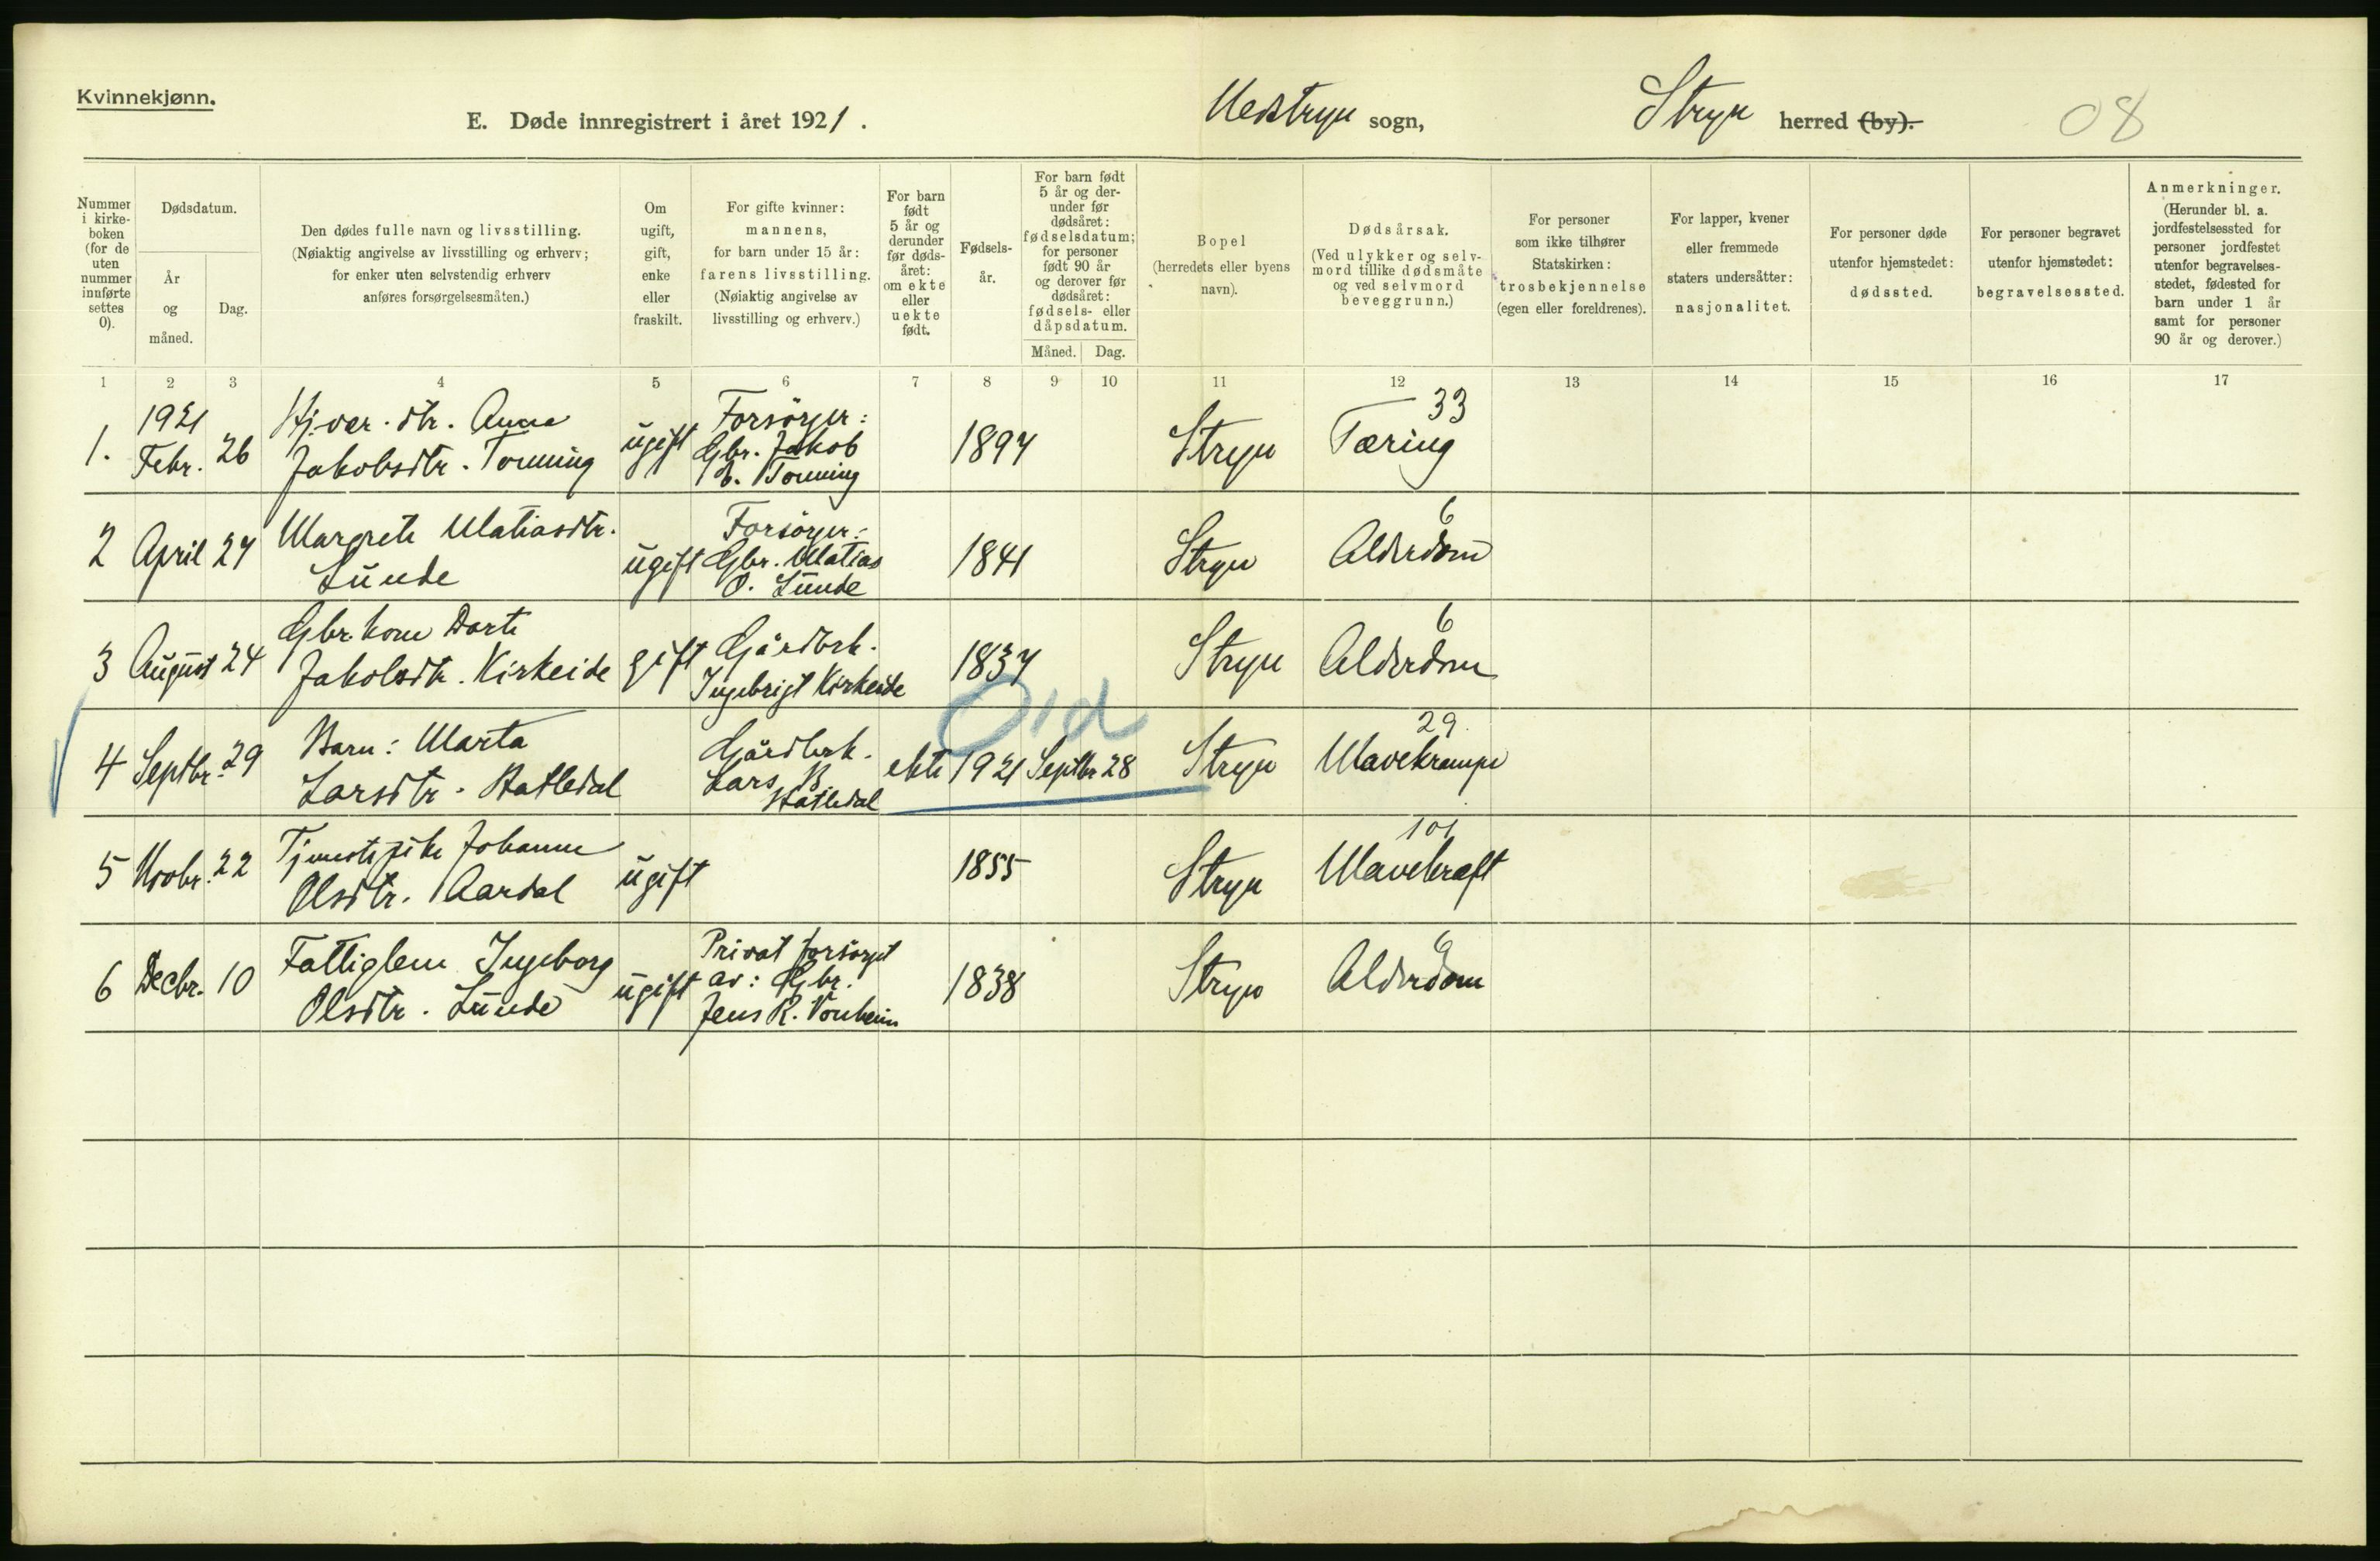 Kvinnekjønn.
E. Døde innregistrert i året 1921.
Nedstryn sogn,
Stryn herred (by).
08
Nummer
i kirke-
boken
(for de
uten
nummer
innførte
settes
0).
Dødsdatum.
År
og
måned.
Dag.
Den dødes fulle navn og livsstilling.
(Nøiaktig angivelse av livsstilling og erhverv;
for enker uten selvstendig erhverv
anføres forsørgelsesmåten.)
Om
ugift,
gift,
enke
eller
fraskilt.
For gifte kvinner:
mannens,
for barn under 15 år:
farens livsstilling.
(Nøiaktig angivelse av
livsstilling og erhverv.)
For barn
født
5 år og
derunder
før døds-
året:
om ekte
eller
uekte
født.
Fødsels-
år.
For barn født
5 år og der-
under før
dødsåret:
fødselsdatum;
for personer
født 90 år
og derover før
dødsåret:
fødsels- eller
dåpsdatum.
Måned. Dag.
Bopel
(herredets eller byens
navn).
Dødsårsak.
(Ved ulykker og selv-
mord tillike dødsmåte
og ved selvmord
beveggrunn.)
For personer
som ikke tilhører
Statskirken:
trosbekjennelse
(egen eller foreldrenes).
For lapper, kvener
eller fremmede
staters undersåtter:
nasjonalitet.
For personer døde
utenfor hjemstedet:
dødssted.
For personer begravet
utenfor hjemstedet:
begravelsessted.
Anmerkninger.
(Herunder bl. a.
jordfestelsessted for
personer jordfestet
utenfor begravelses-
stedet, fødested for
barn under 1 år
samt for personer
90 år og derover.)
1 2 3 4 5 6 7 8 9 10 11 12 13 14 15 16 17
1921 Anna Forsörger: 33
1. Febr. 26 Jakobsdtr. Tonning ugift Gbr. Jakob 1897 Stryn Tæring
Tonning
2 April 27 Margrete Matiasdtr. ugift Forsörger: 1841 Stryn 6
Lunde Gbr. Matias Alderdom
O. Lunde
3 August 24 Gbrkone Dorte gift Gårdbrk. 1837 Stryn 6
Jakobsdtr. Kirkeide Ingebrigt Kirkeide Alderdom
Old
4 Septbr. 29 Barn: Marta Gårdbrk. ekte 1921 Septbr 28 Stryn 29
Larsdtr. Hatledal Lars B. Mavekrampe
Hatledal
5 Novbr. 22 Tjenestepike Johanne ugift 1855 Stryn 101
Olsdtr. Aardal Mavekræft
6 Decbr. 10 Fattiglem Ingeborg ugift Privat forsörget 1838 Stryn 6
Olsdtr. Lunde av: Gbr. Alderdom
Jens R. Vonheim